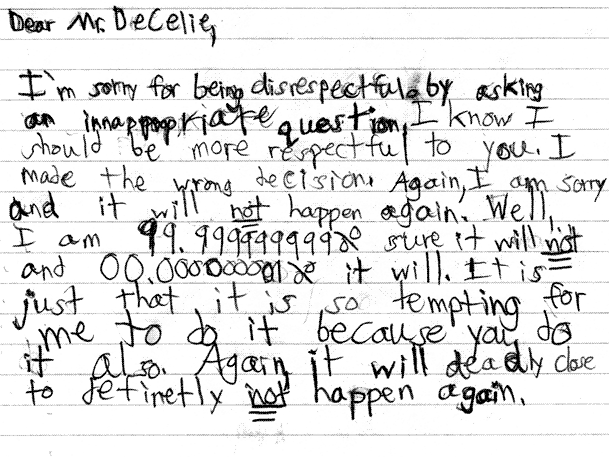 Dear Mr. DeCelie,
I'm sorry for being disrespectful by asking
an innappropriate question, I know I
should be more respectful to you. I
made the wrong decision. Again, I am sorry
and it will not happen again. Well,
I am 99.999999999% sure it will not
and 00.000000001% it will. It is
just that it is so tempting for
me to do it because you do
it also. Again, it will deadly close
to definetly not happen again.